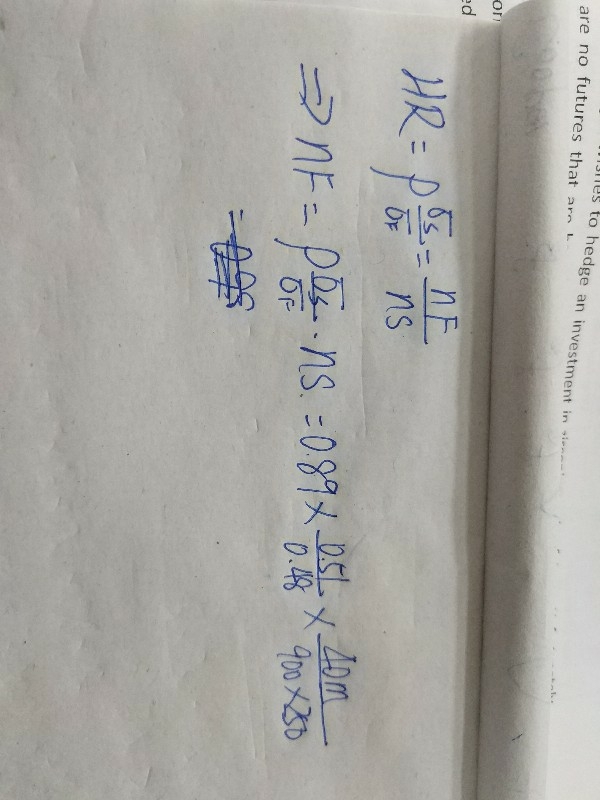 are no futures that are
to hedge an investment in
on
ed
HR = ρ σs/σF = nF/ns
⇒ nF = ρ σs/σF · ns. = 0.89 × 0.51/0.48 × 40m/900×250
=